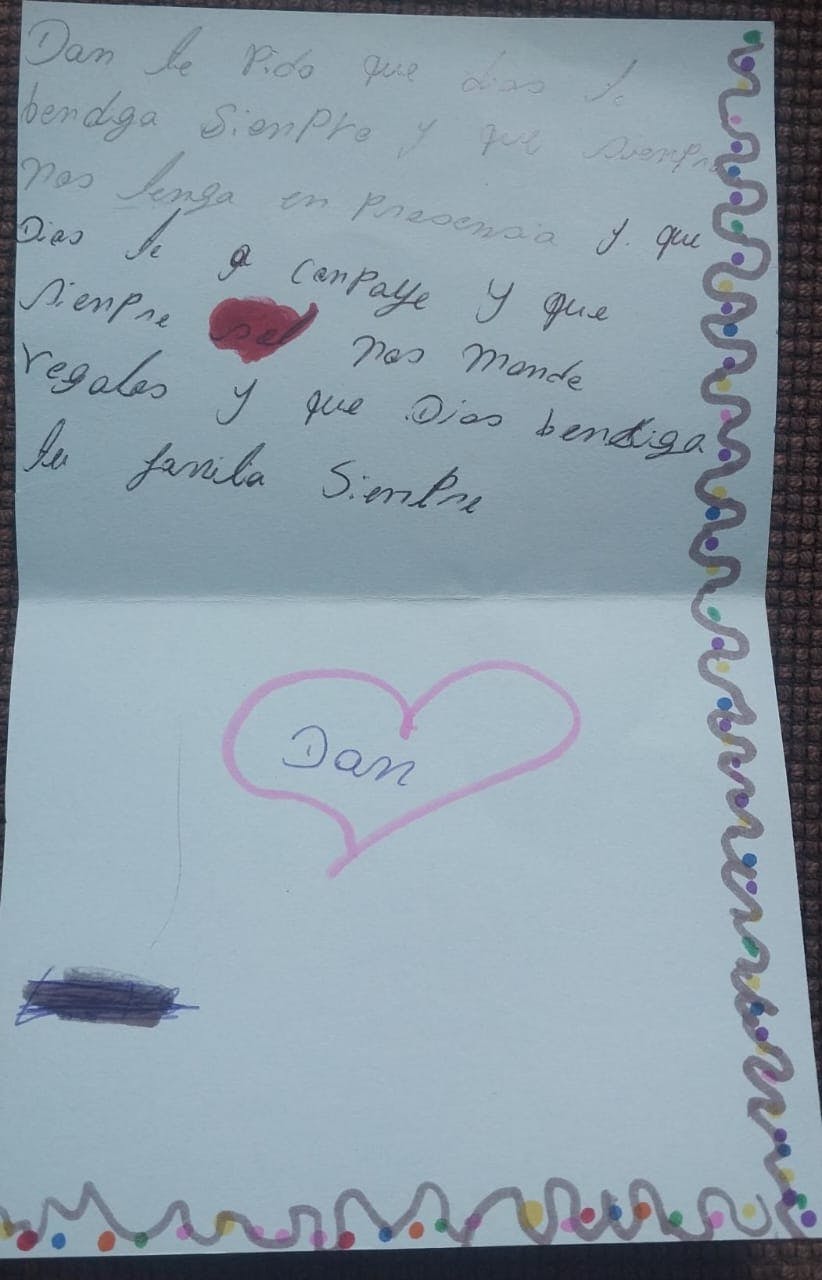 Dan le Pido que dios le
bendiga Sienpre y que sienpre
nos tenga en presensia y que
Dios le a conpaye y que
sienpre nos mande
regalos y que Dios bendiga
tu fanila Sienpre
Dan